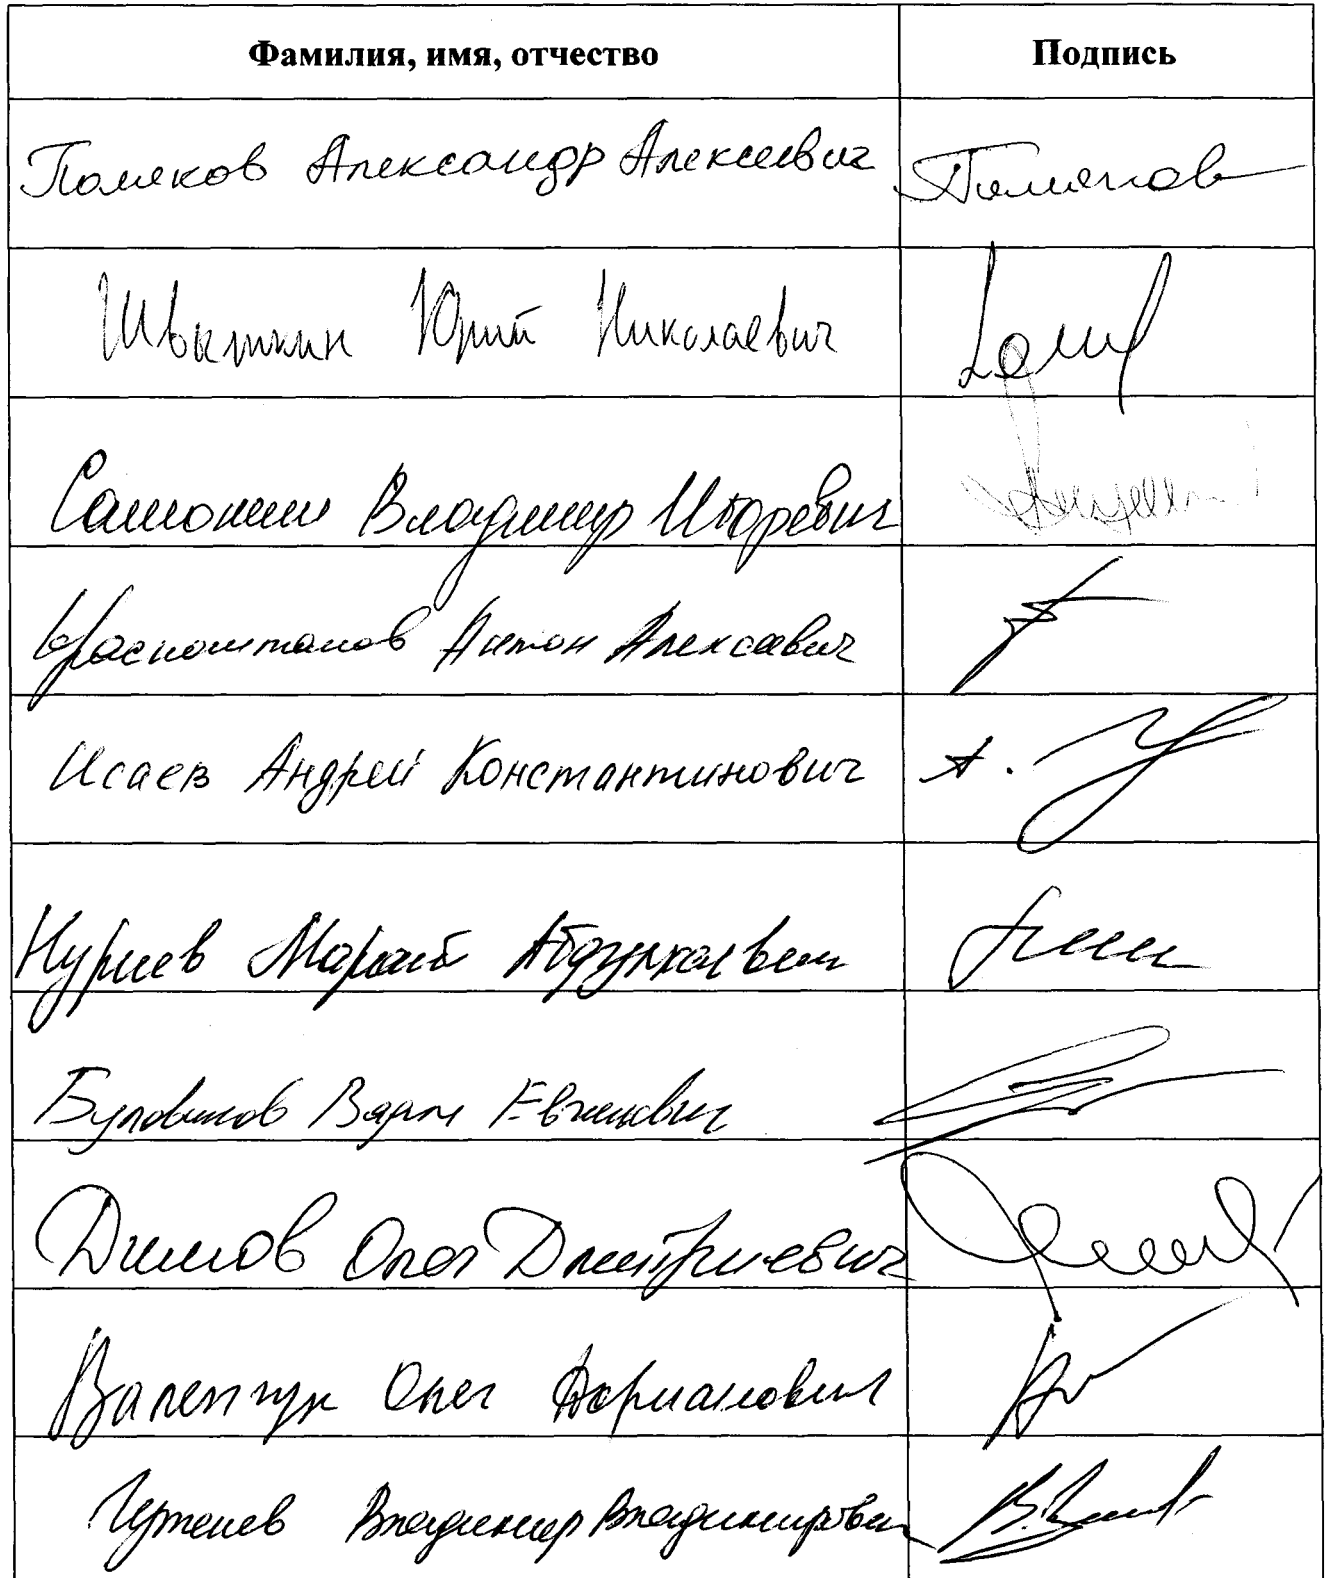 Фамилия, имя, отчество Подпись
Поляков Александр Алексеевич
Швыткин Юрий Николаевич
Самокиш Владимир Игоревич
Красноштанов Антон Алексеевич
Исаев Андрей Константинович
Нуриев Марат Абдулхаевич
Булавинов Вадим Евгеньевич
Димов Олег Дмитриевич
Валенчук Олег Дорианович
Владимир Владимирович